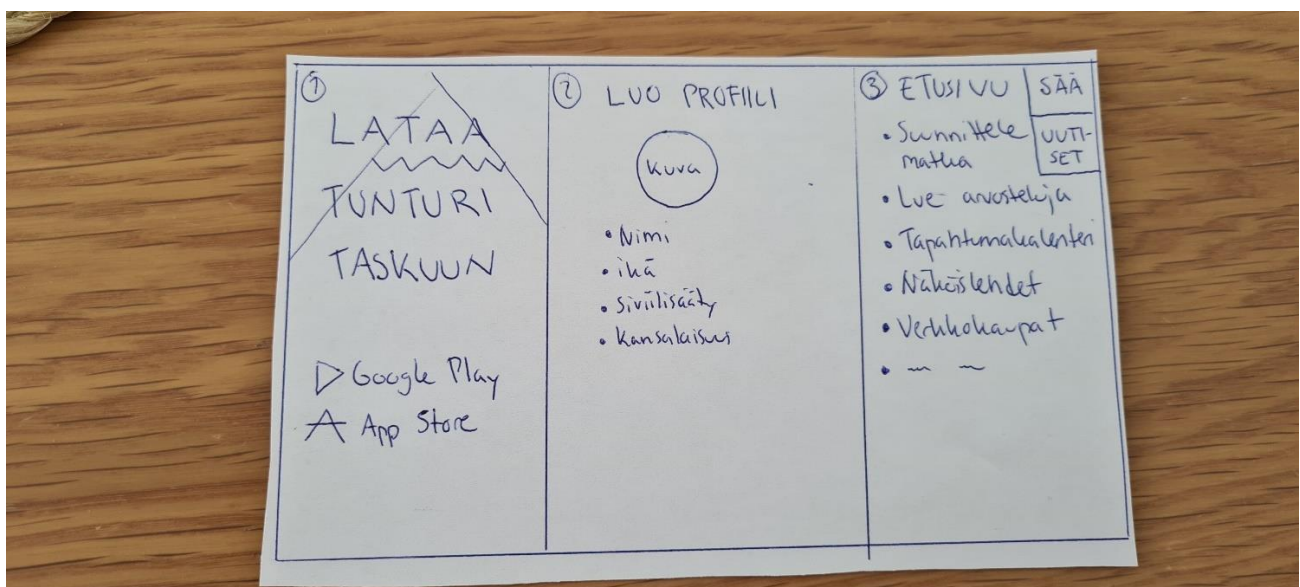 ①
LATAA
TUNTURI
TASKUUN
Google Play
App Store
② LUO PROFIILI
Kuva
• Nimi
• ikä
• Siviilisääty
• Kansalaisuus
③ ETUSIVU
SÄÄ
UUTI-
SET
• Suunnittele
matka
• Lue arvosteluja
• Tapahtumakalenteri
• Näköislehdet
• Verkkokaupat